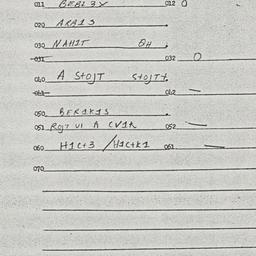 011 BERL 3Y 012 0
020 ARAI3
030 NAHIT 8H
031 032 0
040 A StOJT StOJTt.
041 042 —
050 BER1K1S
051 ROj7 VI A CV1R 052 —
060 H1Ct3 / H1CtK1 061 —
070